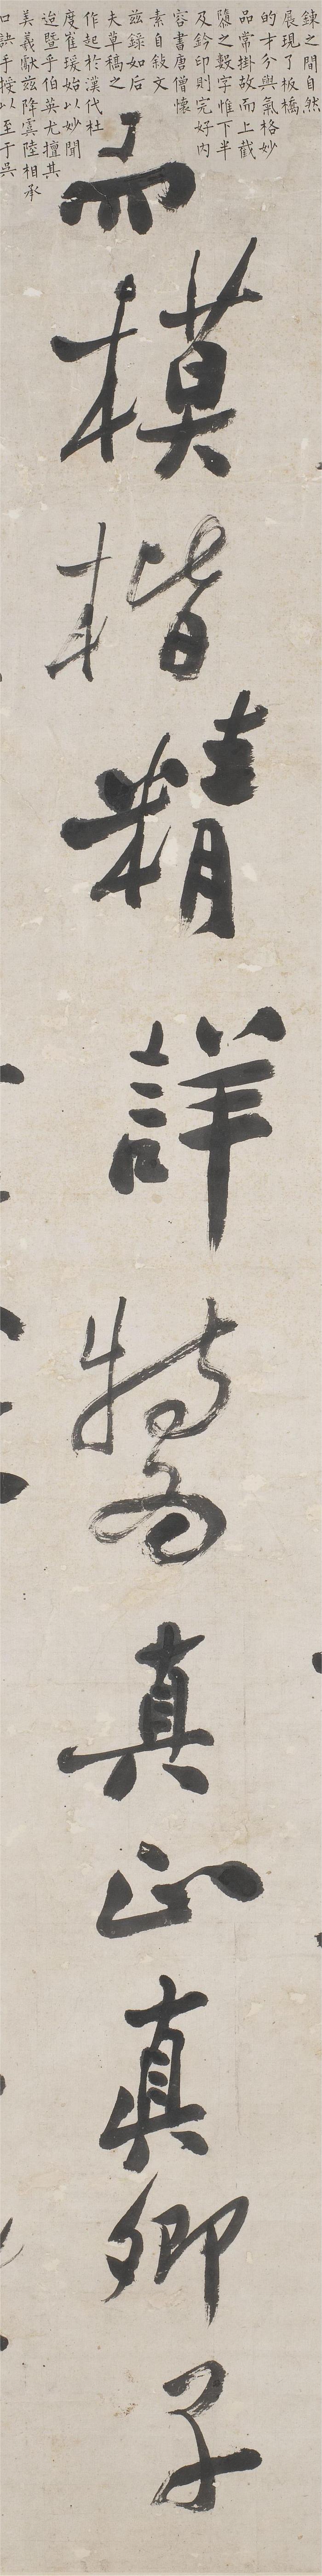 鍊之間自然
展現了板橋
的才分與氣格妙
品常掛故而上截
隨之毀字惟下半
及鈐印則完好內
容書唐僧懷
素自敘文
茲錄如后
夫草稿之
作起於漢代杜
度崔瑗始以妙聞
迨暨乎伯英尤擅其
美羲獻茲降虞陸相承
口訣手授以至于吳
而模楷精詳特為真正真卿子